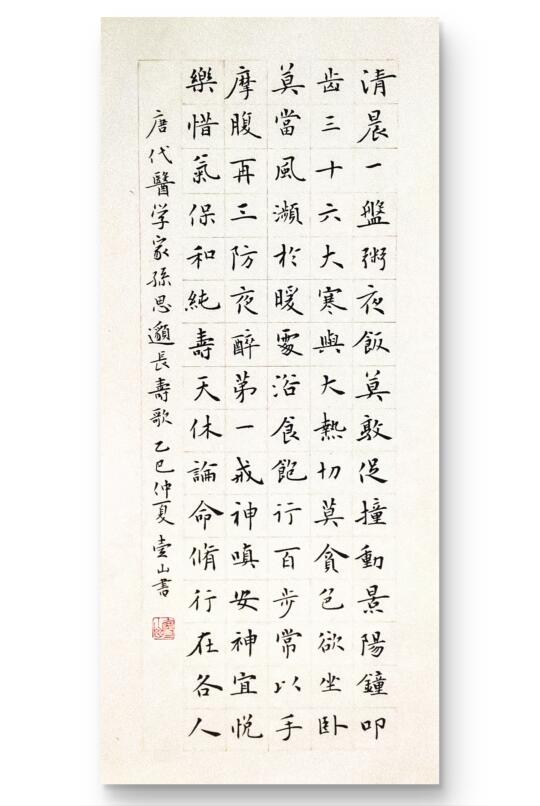 清晨一盤粥夜飯莫教足撞動景陽鐘叩
齿三十六大寒與大熱切莫貪色欲坐卧
莫當風瀕於暖處浴食飽行百步常以手
摩腹再三防夜醉第一戒神嗔安神宜悅
樂惜氣保和純壽天休論命脩行在各人
唐代醫学家孫思邈長壽歌乙巳仲夏壹山書